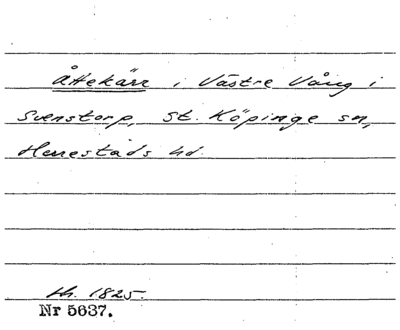 Åttekärr i Västre Vång i
Svenstorp, St. Köpinge sn,
Herrestads hd.
th. 1825.
Nr 5637.